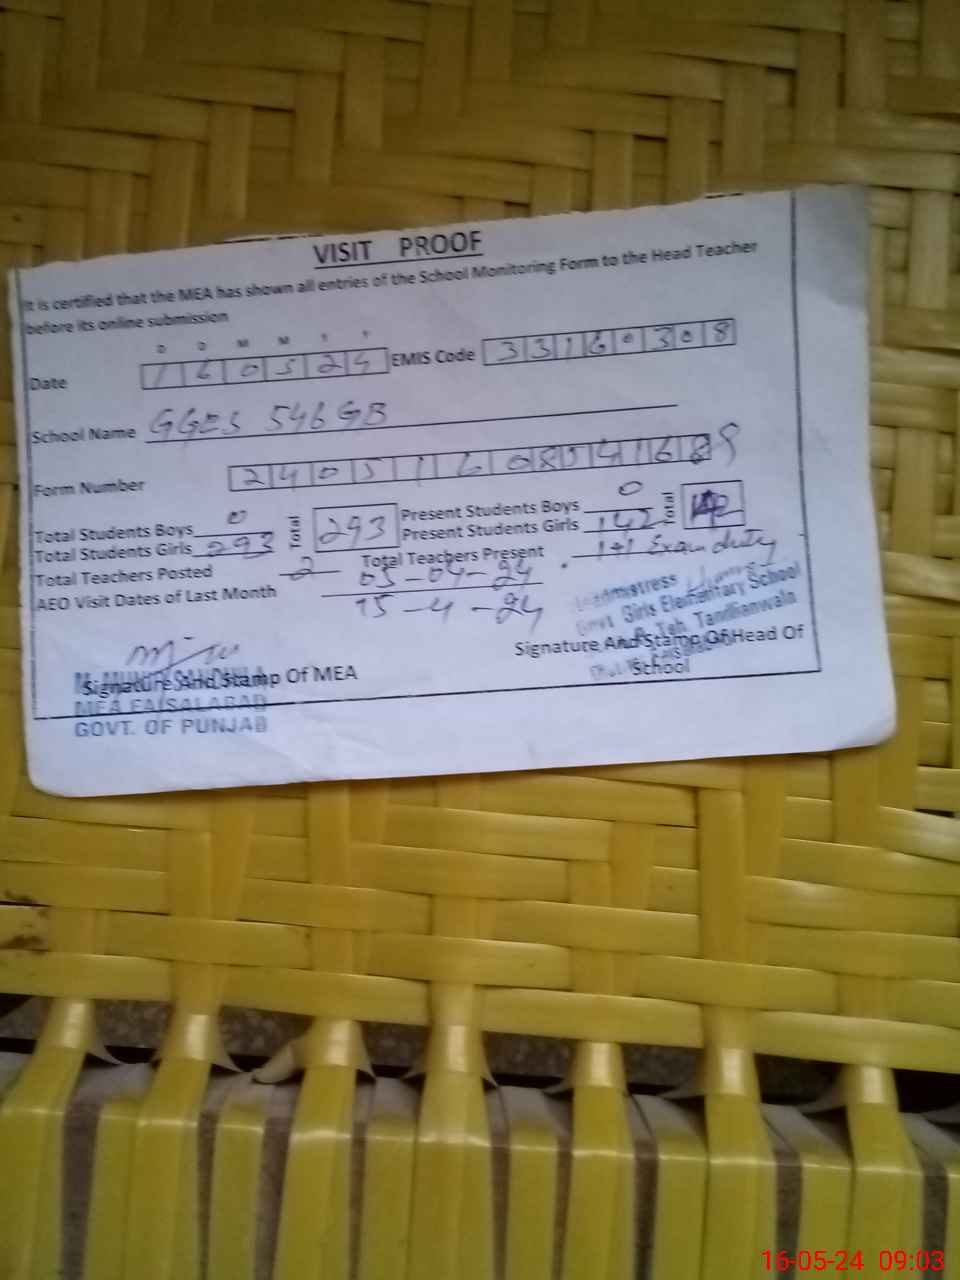 VISIT PROOF
It is certified that the MEA has shown all entries of the School Monitoring Form to the Head Teacher
before its online submission
D D M M Y Y
Date 160524 EMIS Code 33160308
School Name GGES 546 GB
Form Number 24051608
Total Students Boys 0 Total 293 Present Students Boys 0 Total
Total Students Girls 293 Present Students Girls 142
Total Teachers Posted 2 Total Teachers Present 1+1 Exam duty
AEO Visit Dates of Last Month 05-04-24
15-4-24
Headmistress
Govt Girls Elementary School
Teh. Tandlianwala
Signature And Stamp Of MEA
Signature And Stamp Of Head Of
School
MEA FAISALABAD
GOVT. OF PUNJAB
16-05-24 09:03